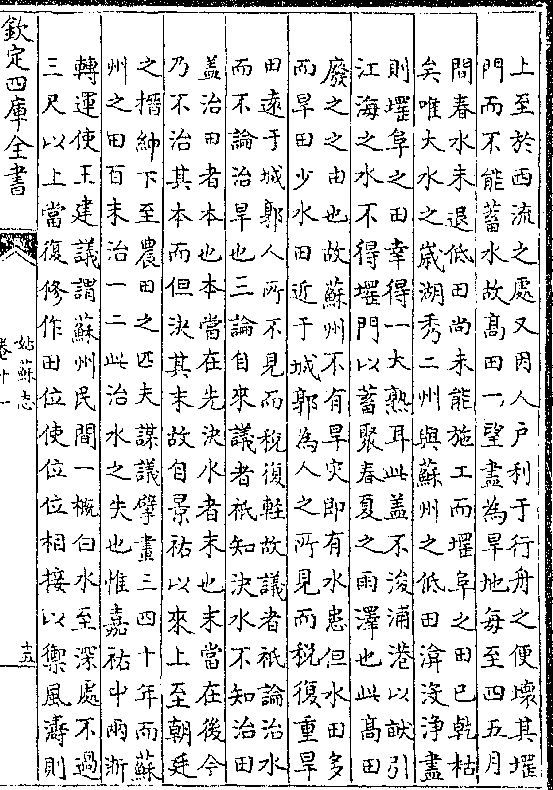 上至於西流之處又因人戶利于行舟之便壞其堽
門而不能蓄水故髙田一望盡為旱地每至四五月
間春水未退低田尚未能施工而堽阜之田已乾枯
矣唯大水之嵗湖秀二州與蘇州之低田渰浸浄盡
則堽阜之田幸得一大熟耳此盖不浚浦港以畎引
江海之水不得堽門以蓄聚春夏之雨澤也此髙田
廢之之由也故蘇州不有旱灾即有水患但水田多
而旱田少水田近于城郭為人之所見而税復重旱
田逺于城郭人所不見而税復輕故議者祇論治水
而不論治旱也三論自來議者祇知決水不知治田
盖治田者本也本當在先決水者末也末當在後今
乃不治其本而但決其末故自景祐以來上至朝廷
之搢紳下至農田之匹夫謀議擘畫三四十年而蘇
州之田百未治一二此治水之失也惟嘉祐中兩浙
轉運使王建議謂蘇州民間一概白水至深處不過
三尺以上當復修作田位使位位相接以禦風濤則
欽定四庫全書
姑蘇志
卷十一
十五